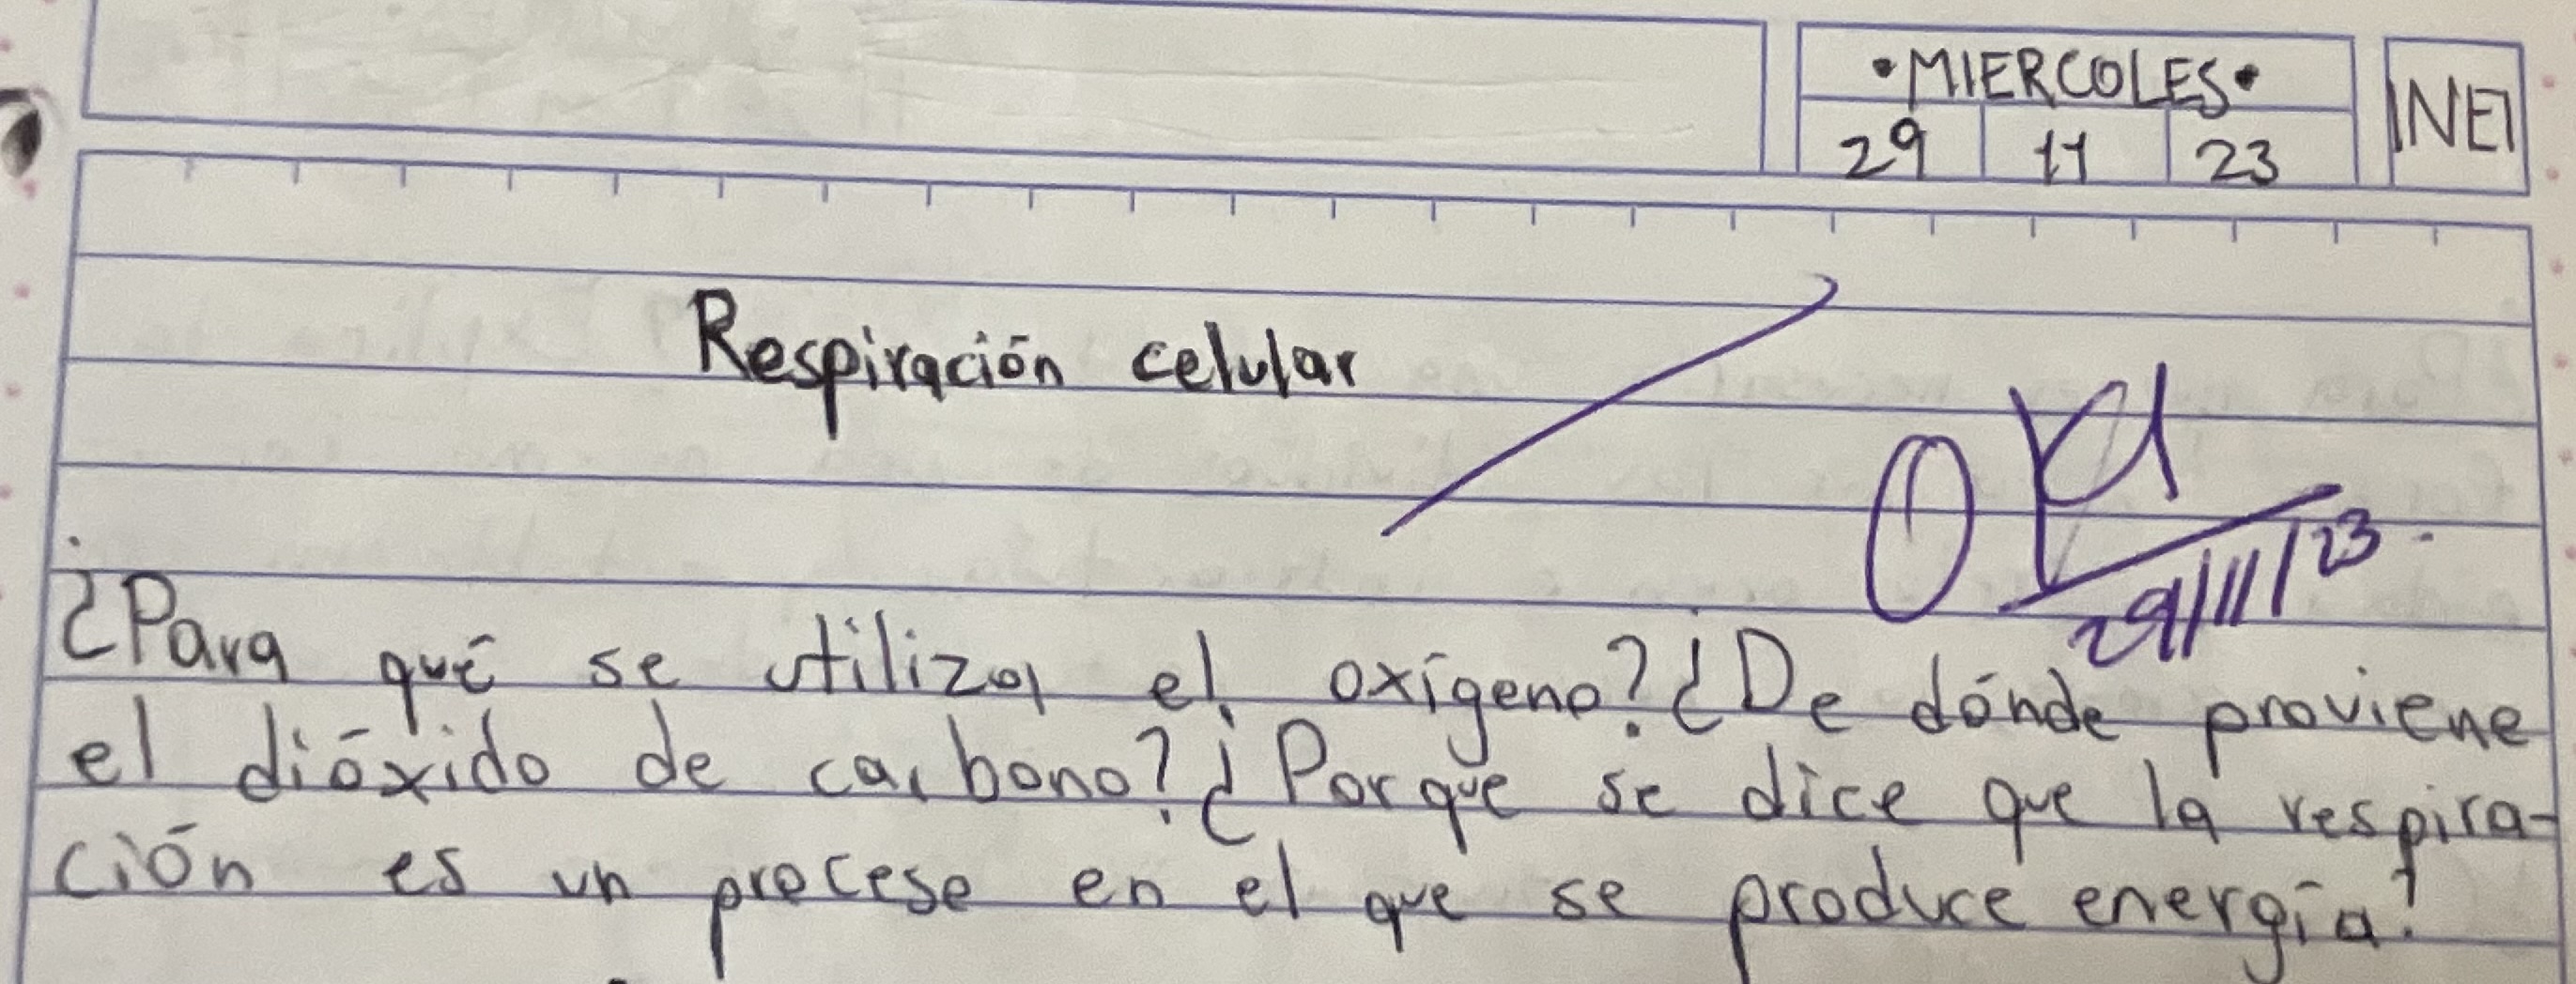 •MIERCOLES•
29 11 23
INEI
Respiración celular
29/11/23
¿Para qué se utiliza el oxígeno? ¿De dónde proviene
el dióxido de carbono? ¿Porque se dice que la respira-
ción es un procese en el que se produce energía?